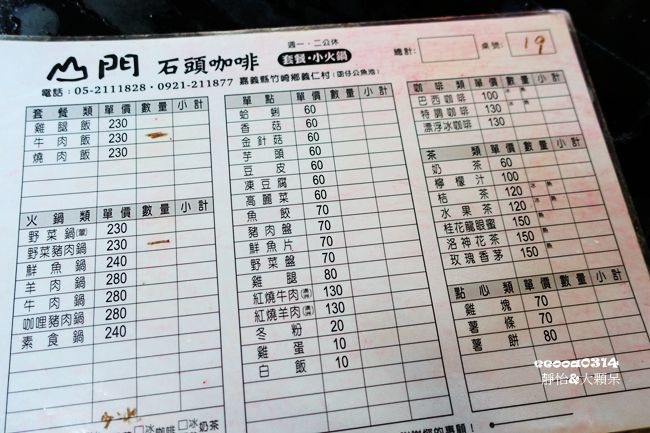 週一．二公休
山門 石頭咖啡 套餐・小火鍋
總計： 桌號： 19
電話：05-2111828・0921-211877 嘉義縣竹崎鄉義仁村(崁仔公魚池)
套餐類 單價 數量 小計
雞腿飯 230
牛肉飯 230
燒肉飯 230
火鍋類 單價 數量 小計
野菜鍋 230
野菜豬肉鍋 230
鮮魚鍋 240
羊肉鍋 280
牛肉鍋 280
咖哩豬肉鍋 280
素食鍋 240
□冰咖啡 □冰奶茶
單點 單價 數量 小計
蛤蜊 60
香菇 60
金針菇 60
芋頭 60
豆皮 60
凍豆腐 60
高麗菜 60
魚餃 70
豬肉盤 70
鮮魚片 70
野菜盤 70
雞腿 80
紅燒牛肉 130
紅燒羊肉 130
冬粉 20
雞蛋 10
白飯 10
咖啡類 單價 數量 小計
巴西咖啡 100 冰 熱
特調咖啡 130
漂浮冰咖啡 130
茶類 單價 數量 小計
奶茶 60
檸檬汁 100 冰 熱
桔茶 120 冰 熱
水果茶 120 冰 熱
桂花龍眼蜜 150 熱
洛神花茶 150 熱
玫瑰香茅 150 熱
點心類 單價 數量 小計
雞塊 70
薯條 70
薯餅 80
eeooa0314
靜怡&大顆呆